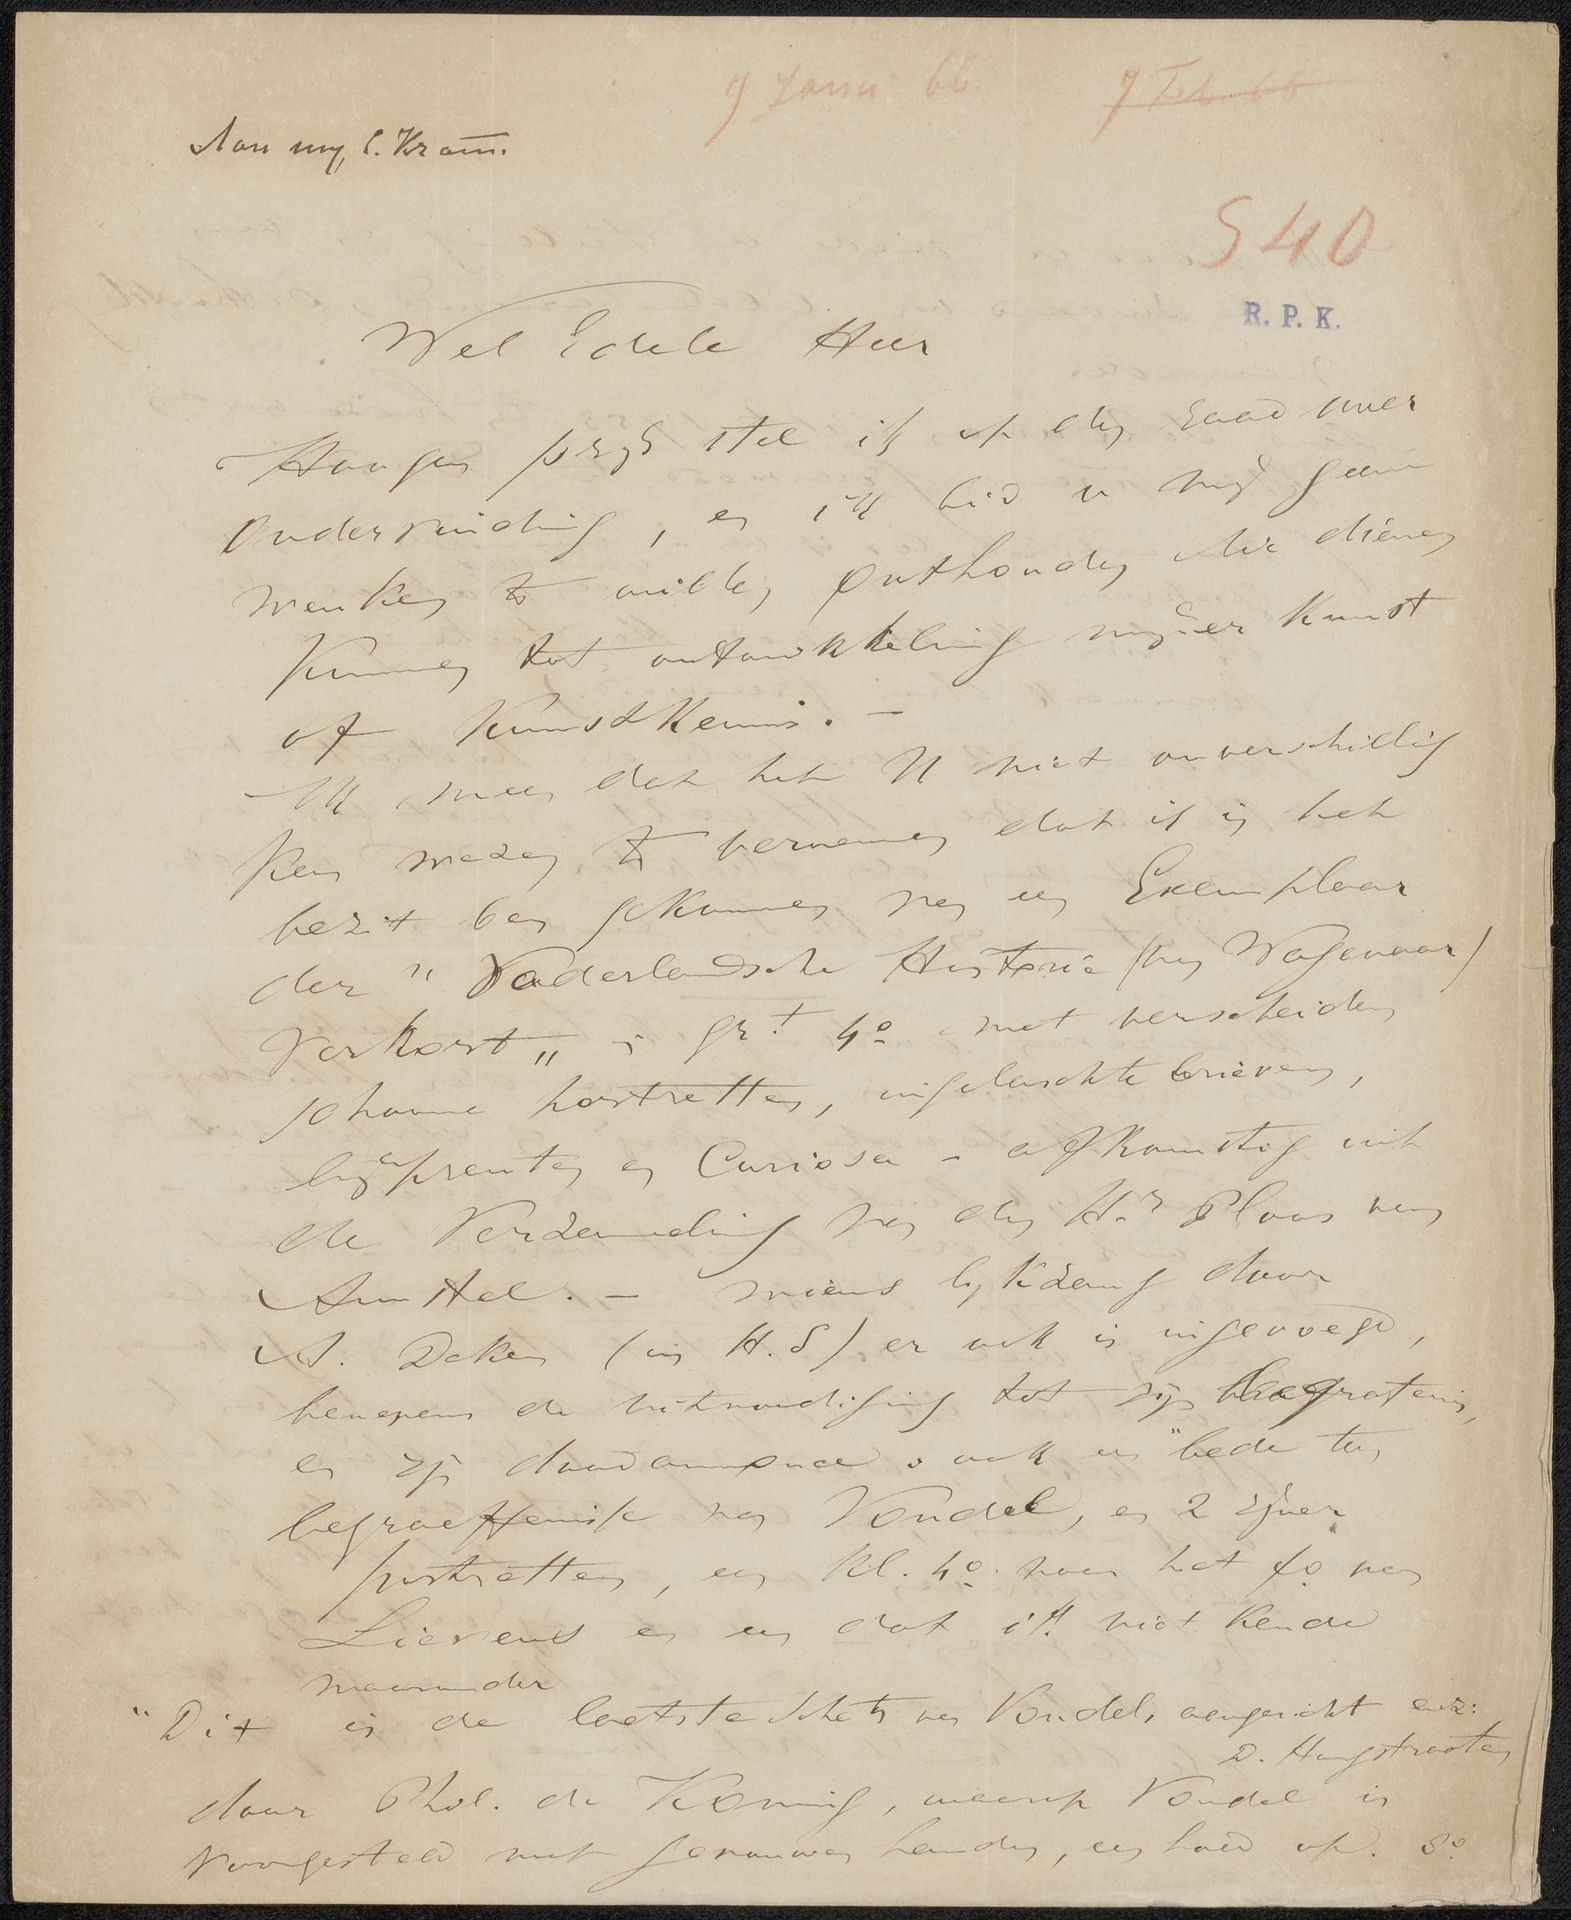 9 Janu 66 7 Feb 66
Aan my, C. Kram.
540
R. P. K.
Wel Edele Heer
Hoogen prijs stel ik op den raad uwer
Ondervinding, en ik bid u mij geen
wenken te willen onthouden die dienen
kunnen tot ontwikkeling mijner kunst
of Kunstkennis. –
Ik meen dat het U niet onverschillig
kan wezen te vernemen dat ik in het
bezit ben gekomen van een Exemplaar
der "Vaderlandsche Historie (van Wagenaar)
Verkort" in grt 4o met verscheiden
schoone portretten, ingelaschte brieven,
bijprenten en Curiosa – afkomstig uit
de Verzameling van den Hr Ploos van
Amstel. – wiens lykzang door
A. Deken (in H.S) er ook in ingevoegd,
benevens de uitnoodiging tot zijn begrafenis,
en zijn doodannonce, ook een "bede ten
begraeffenisse van Vondel, en 2 zijner
portretten, een kl. 4o. naar het fo van
Lievens en een dat ik niet kende
waaronder
"Dit is de laetste schets van Vondel, aengericht enz:
D. Hoogstraten
door Phil. de Koning, waarop Vondel is
voorgesteld met gevouwen handen, een hoed op. 8o